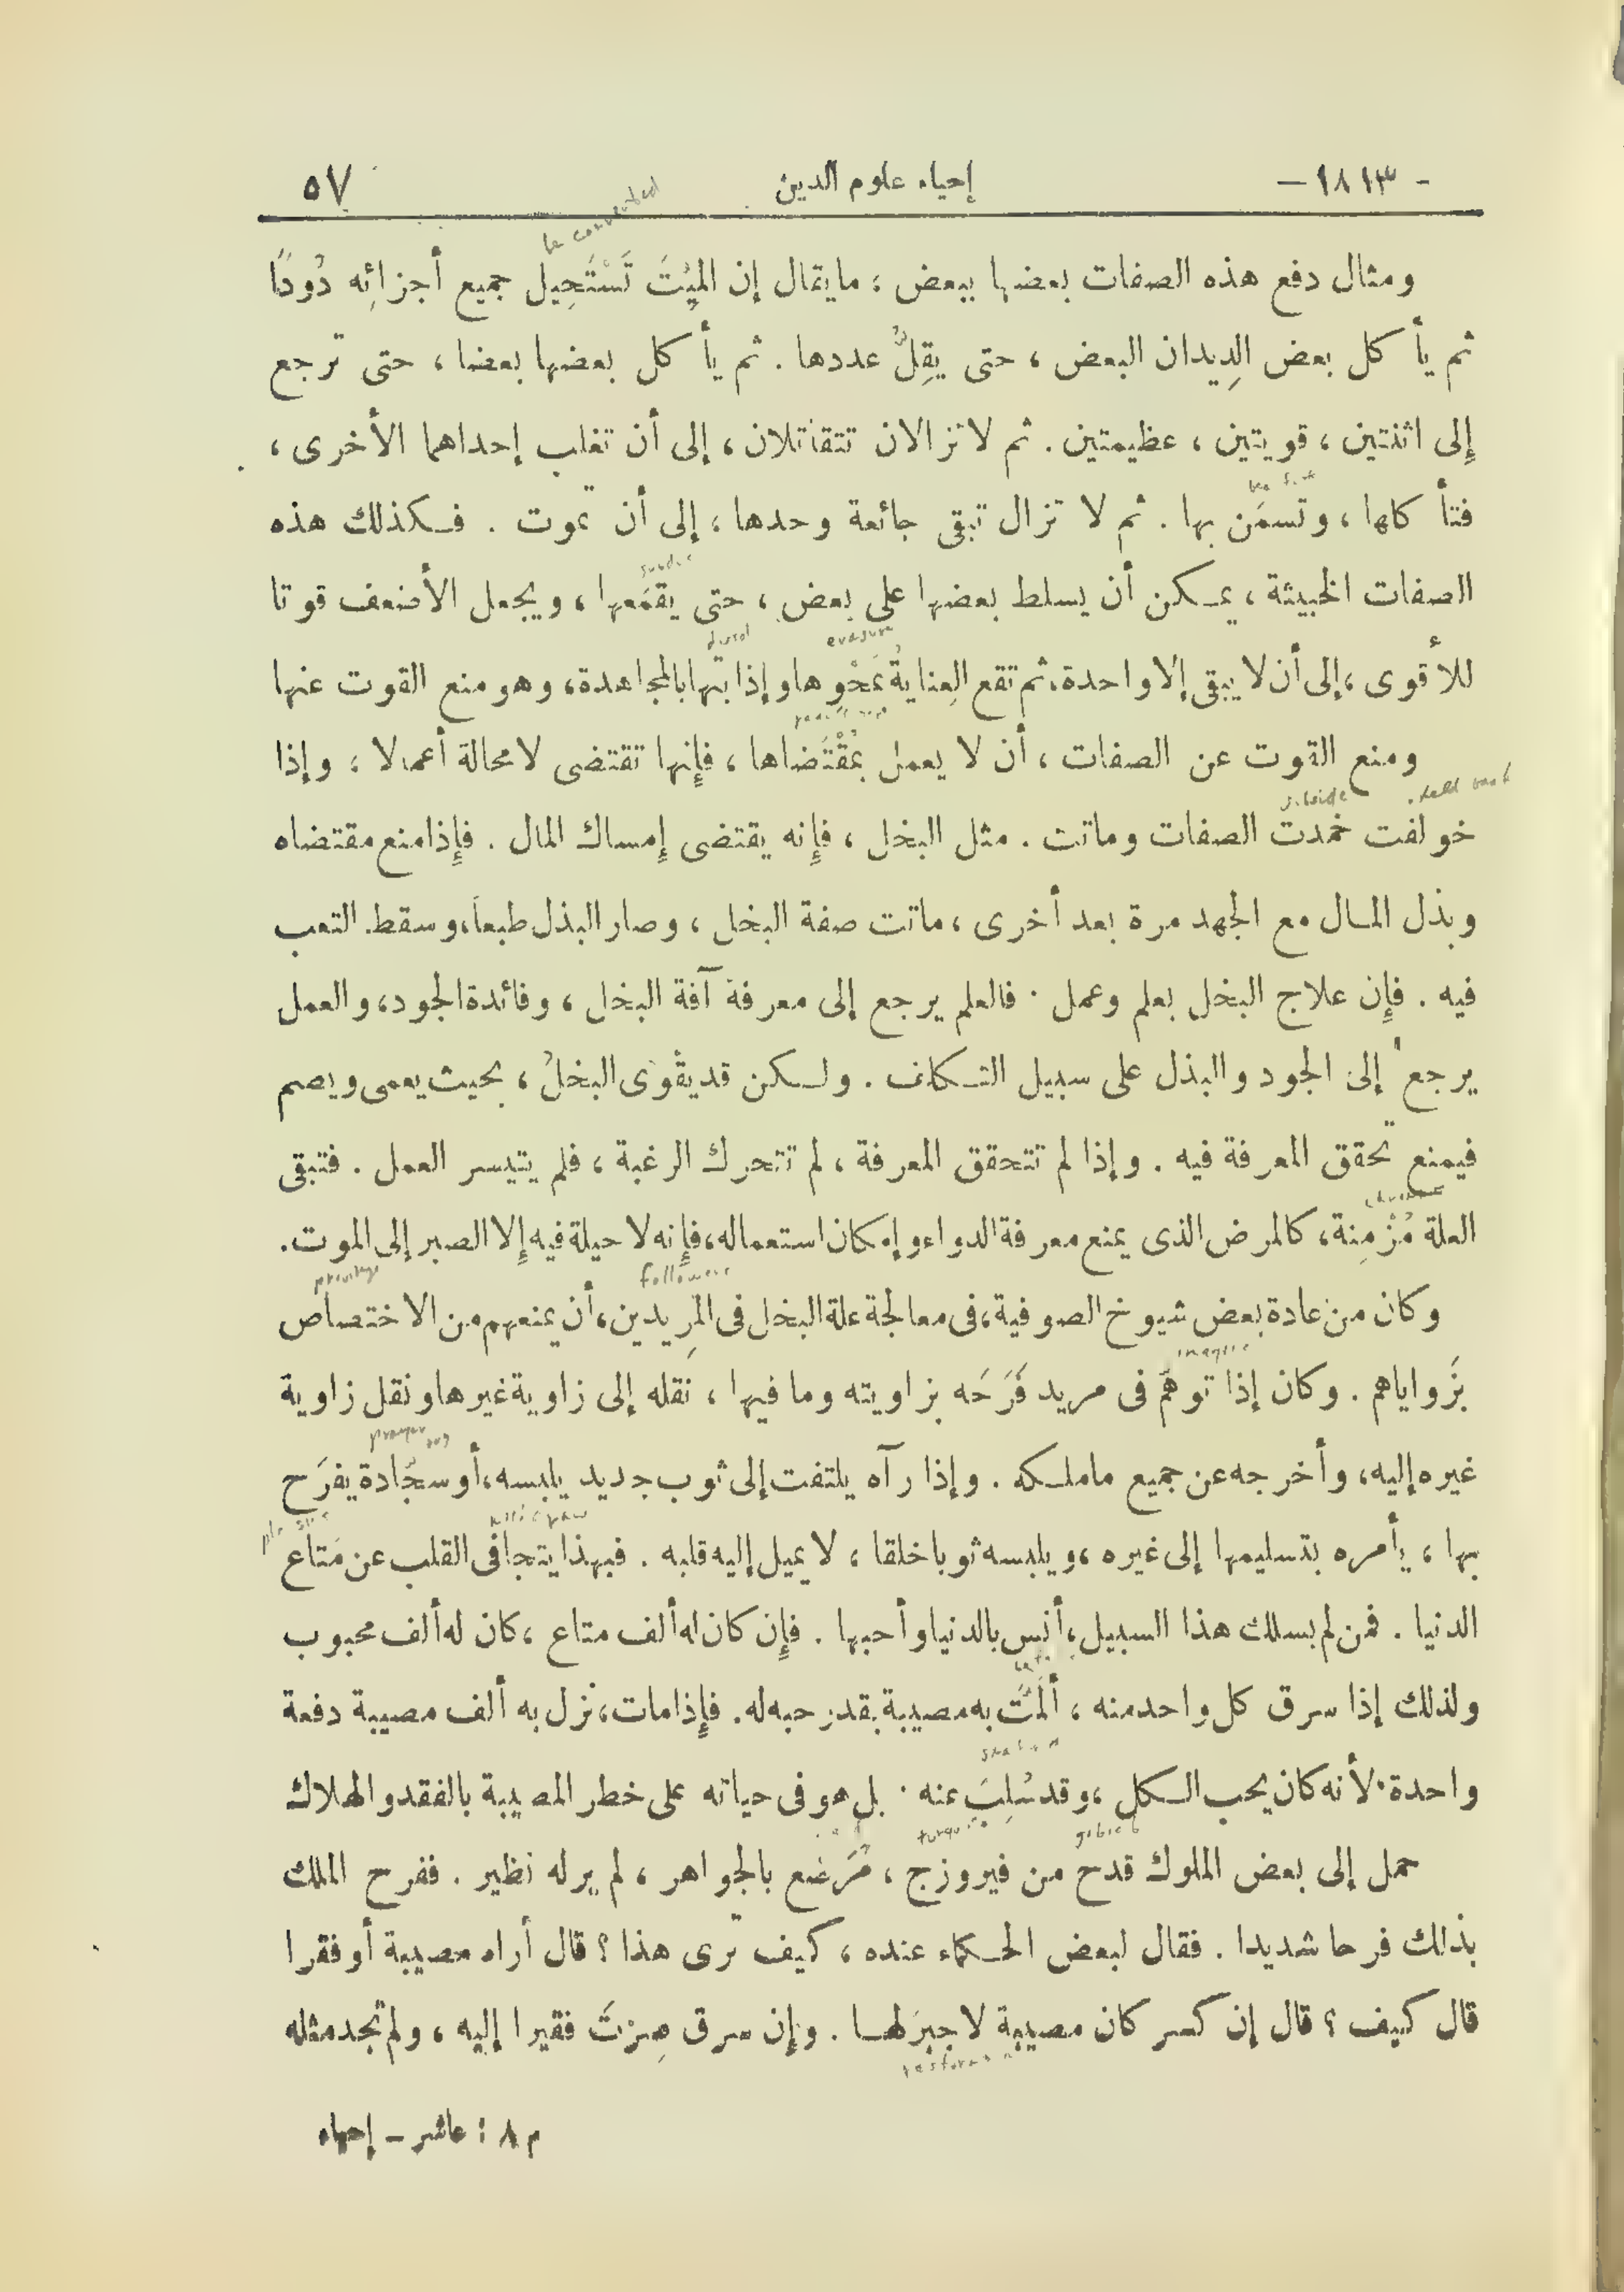 - ١٨١٣ - إحياء علوم الدين ٥٧
be converted
ومثال دفع هذه الصفات بعضها ببعض ، ما يقال إن الميِّتَ تَسْتَحِيل جميع أجزائِه دُودًا
ثم يأكل بعض الدِيدان البعض ، حتى يقِلُّ عددها . ثم يأكل بعضها بعضا ، حتى ترجع
إلى اثنتين ، قويتين ، عظيمتين . ثم لا تزالان تتقاتلان ، إلى أن تغلب إحداهما الأخرى ،
be fat
فتأكلها ، وتسمَن بها . ثم لا تزال تبقى جائعة وحدها ، إلى أن تموت . فكذلك هذه
subdue
الصفات الخبيثة ، يمكن أن يسلط بعضها على بعض ، حتى يقمَعها ، ويجعل الأضعف قوتا
erasure
للأقوى ، إلى أن لا يبقى إلا واحدة ، ثم تقع العِنايةُ بمَحْوِها وإذابتها بالمجاهدة ، وهو منع القوت عنها
ومنع القوت عن الصفات ، أن لا يعمل بمُقْتَضاها ، فإنها تقتضى لا محالة أعمالا ، وإذا
subside held back
خولفت خمدت الصفات وماتت . مثل البخل ، فإنه يقتضى إمساك المال . فإذا منع مقتضاه
وبذل المال مع الجهد مرة بعد أخرى ، ماتت صفة البخل ، وصار البذل طبعاً ، وسقط التعب
فيه . فإن علاج البخل بعلم وعمل . فالعلم يرجع إلى معرفة آفة البخل ، وفائدة الجود ، والعمل
يرجع إلى الجود والبذل على سبيل التكلف . ولكن قد يقْوَى البخلُ ، بحيث يعمى ويصم
فيمنع تحقق المعرفة فيه . وإذا لم تتحقق المعرفة ، لم تتحرك الرغبة ، فلم يتيسر العمل . فتبقى
العلة مُزْمِنة ، كالمرض الذى يمنع معرفة الدواء وإمكان استعماله ، فإنه لا حيلة فيه إلا الصبر إلى الموت .
followers privilege
وكان من عادة بعض شيوخ الصوفية ، فى معالجة علة البخل فى المرِيدين ، أن يمنعهم من الاختصاص
imagine
بزَواياهم . وكان إذا توهَّم فى مريد فَرَحَه بزاويته وما فيها ، نقله إلى زاوية غيرها ونقل زاوية
prayer rug
غيره إليه ، وأخرجه عن جميع ما ملكه . وإذا رآه يلتفت إلى ثوب جديد يلبسه ، أو سجَّادة يفرَح
بها ، يأمره بتسليمها إلى غيره ، ويلبسه ثوبا خلقا ، لا يميل إليه قلبه . فبهذا يتجافى القلب عن مَتاع
الدنيا . فمن لم يسلك هذا السبيل ، أنس بالدنيا وأحبها . فإن كان له ألف متاع ، كان له ألف محبوب
ولذلك إذا سرق كل واحد منه ، ألمَّت به مصيبة بقدر حبه له . فإذا مات ، نزل به ألف مصيبة دفعة
واحدة . لأنه كان يحب الكل ، وقد سُلِبَ عنه . بل هو فى حياته على خطر المصيبة بالفقد والهلاك
goblet
حمل إلى بعض الملوك قدح من فيروزج ، مُرَصَّع بالجواهر ، لم ير له نظير . ففرح الملك
بذلك فرحا شديدا . فقال لبعض الحكماء عنده ، كيف ترى هذا ؟ قال أراه مصيبة أو فقرا
قال كيف ؟ قال إن كسر كان مصيبة لا جبرَ لها . وإن سرق صِرْتَ فقيرا إليه ، ولم تجد مثله
م ٨ : عاشر - إحياء